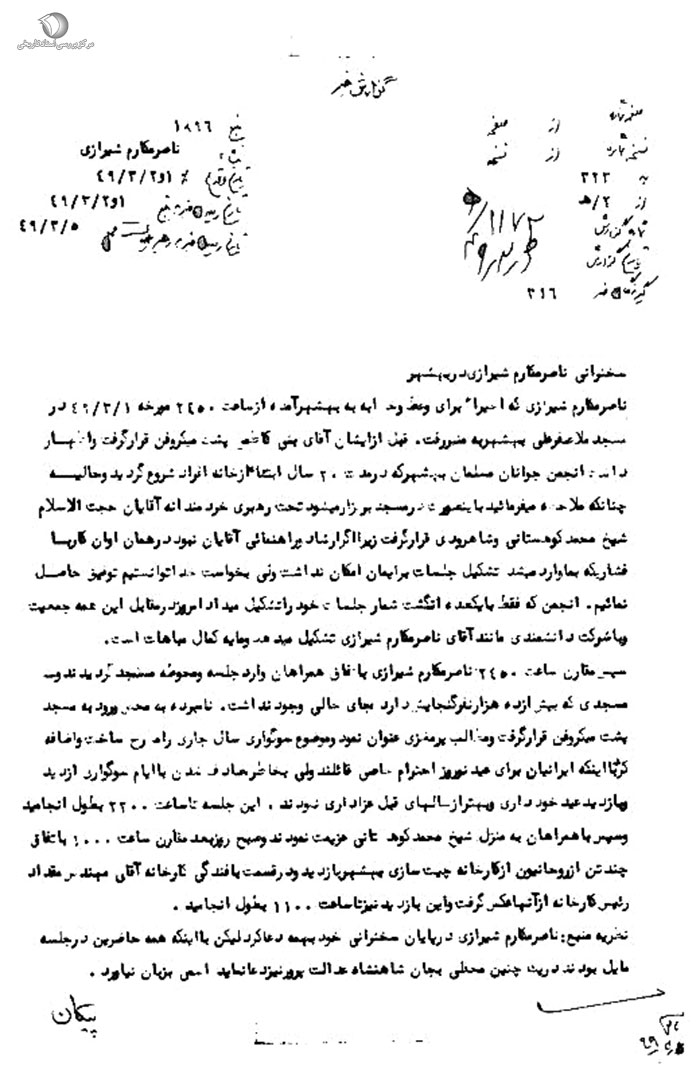 مرکز بررسی اسناد تاریخی
گزارش خبر
صفحه شماره از صفحه
نسخه شماره از نسخه
به ۳۲۳
از ۲/ه
شماره گزارش
تاریخ گزارش
گیرندگان خبر ۳۱۶
۱۸۹۶
ناصرمکارم شیرازی
۱و۴۹/۳/۲
۱و۴۹/۳/۲
۴۹/۳/۵
سخنرانی ناصرمکارم شیرازی در بهشهر
ناصرمکارم شیرازی که اخیرا برای وعظ و خطابه به بهشهر آمده از ساعت ۲۴۵۰ مورخه ۴۹/۳/۱ در
مسجد ملاصفرعلی بهشهر به منبر رفت. قبل از ایشان آقای بنی کاظمی پشت میکروفن قرار گرفت و اظهار
داشت انجمن جوانان مسلمان بهشهر که در مدت ۲۰ سال ابتدا از خانه افراد شروع گردید و حالیه
چنانکه ملاحظه میفرمائید باینصورت در مسجد برگزار میشود تحت رهبری خردمندانه آقایان حجت الاسلام
شیخ محمد کوهستانی و شاهرودی قرار گرفت زیرا اگر ارشاد و راهنمائی آقایان نبود در همان اوان کار با
فشاریکه بما وارد میشد تشکیل جلسات برایمان امکان نداشت ولی بخواست خدا توانستیم توفیق حاصل
نمائیم. انجمن که فقط با یکعده انگشت شمار جلسات خود را تشکیل میداد امروز در مقابل این همه جمعیت
و با شرکت دانشمندی مانند آقای ناصرمکارم شیرازی تشکیل میدهد و مایه کمال مباهات است.
سپس مقارن ساعت ۲۴۵۰ ناصرمکارم شیرازی با تفاق همراهان وارد جلسه و محوطه مسجد گردیدند و
مسجدی که بیش از ده هزار نفر گنجایش دارد جای خالی وجود نداشت. نامبرده به محض ورود به مسجد
پشت میکروفن قرار گرفت و مطالب پرمغزی عنوان نمود و موضوع سوگواری سال جاری را مطرح ساخت و اضافه
کرد با اینکه ایرانیان برای عید نوروز احترام خاصی قائلند ولی بخاطر مصادف شدن با ایام سوگواری از دید
و بازدید عید خودداری و بهتر از سالهای قبل عزاداری نمودند. این جلسه تا ساعت ۲۲۰۰ بطول انجامید
و سپس با همراهان به منزل شیخ محمد کوهستانی عزیمت نمودند و صبح روز بعد مقارن ساعت ۱۰۰۰ با تفاق
چند تن از روحانیون از کارخانه چیت سازی بهشهر بازدید و در قسمت بافندگی کارخانه آقای مهندس مقداد
رئیس کارخانه از آنها عکس گرفت و این بازدید نیز تا ساعت ۱۱۰۰ بطول انجامید.
نظریه منبع: ناصرمکارم شیرازی در پایان سخنرانی خود بهمه دعا کرد لیکن با اینکه همه حاضرین در جلسه
مایل بودند در یک چنین محفلی بجان شاهنشاه عدالت پرور نیز دعا نماید اسمی بزبان نیاورد.
پیکان